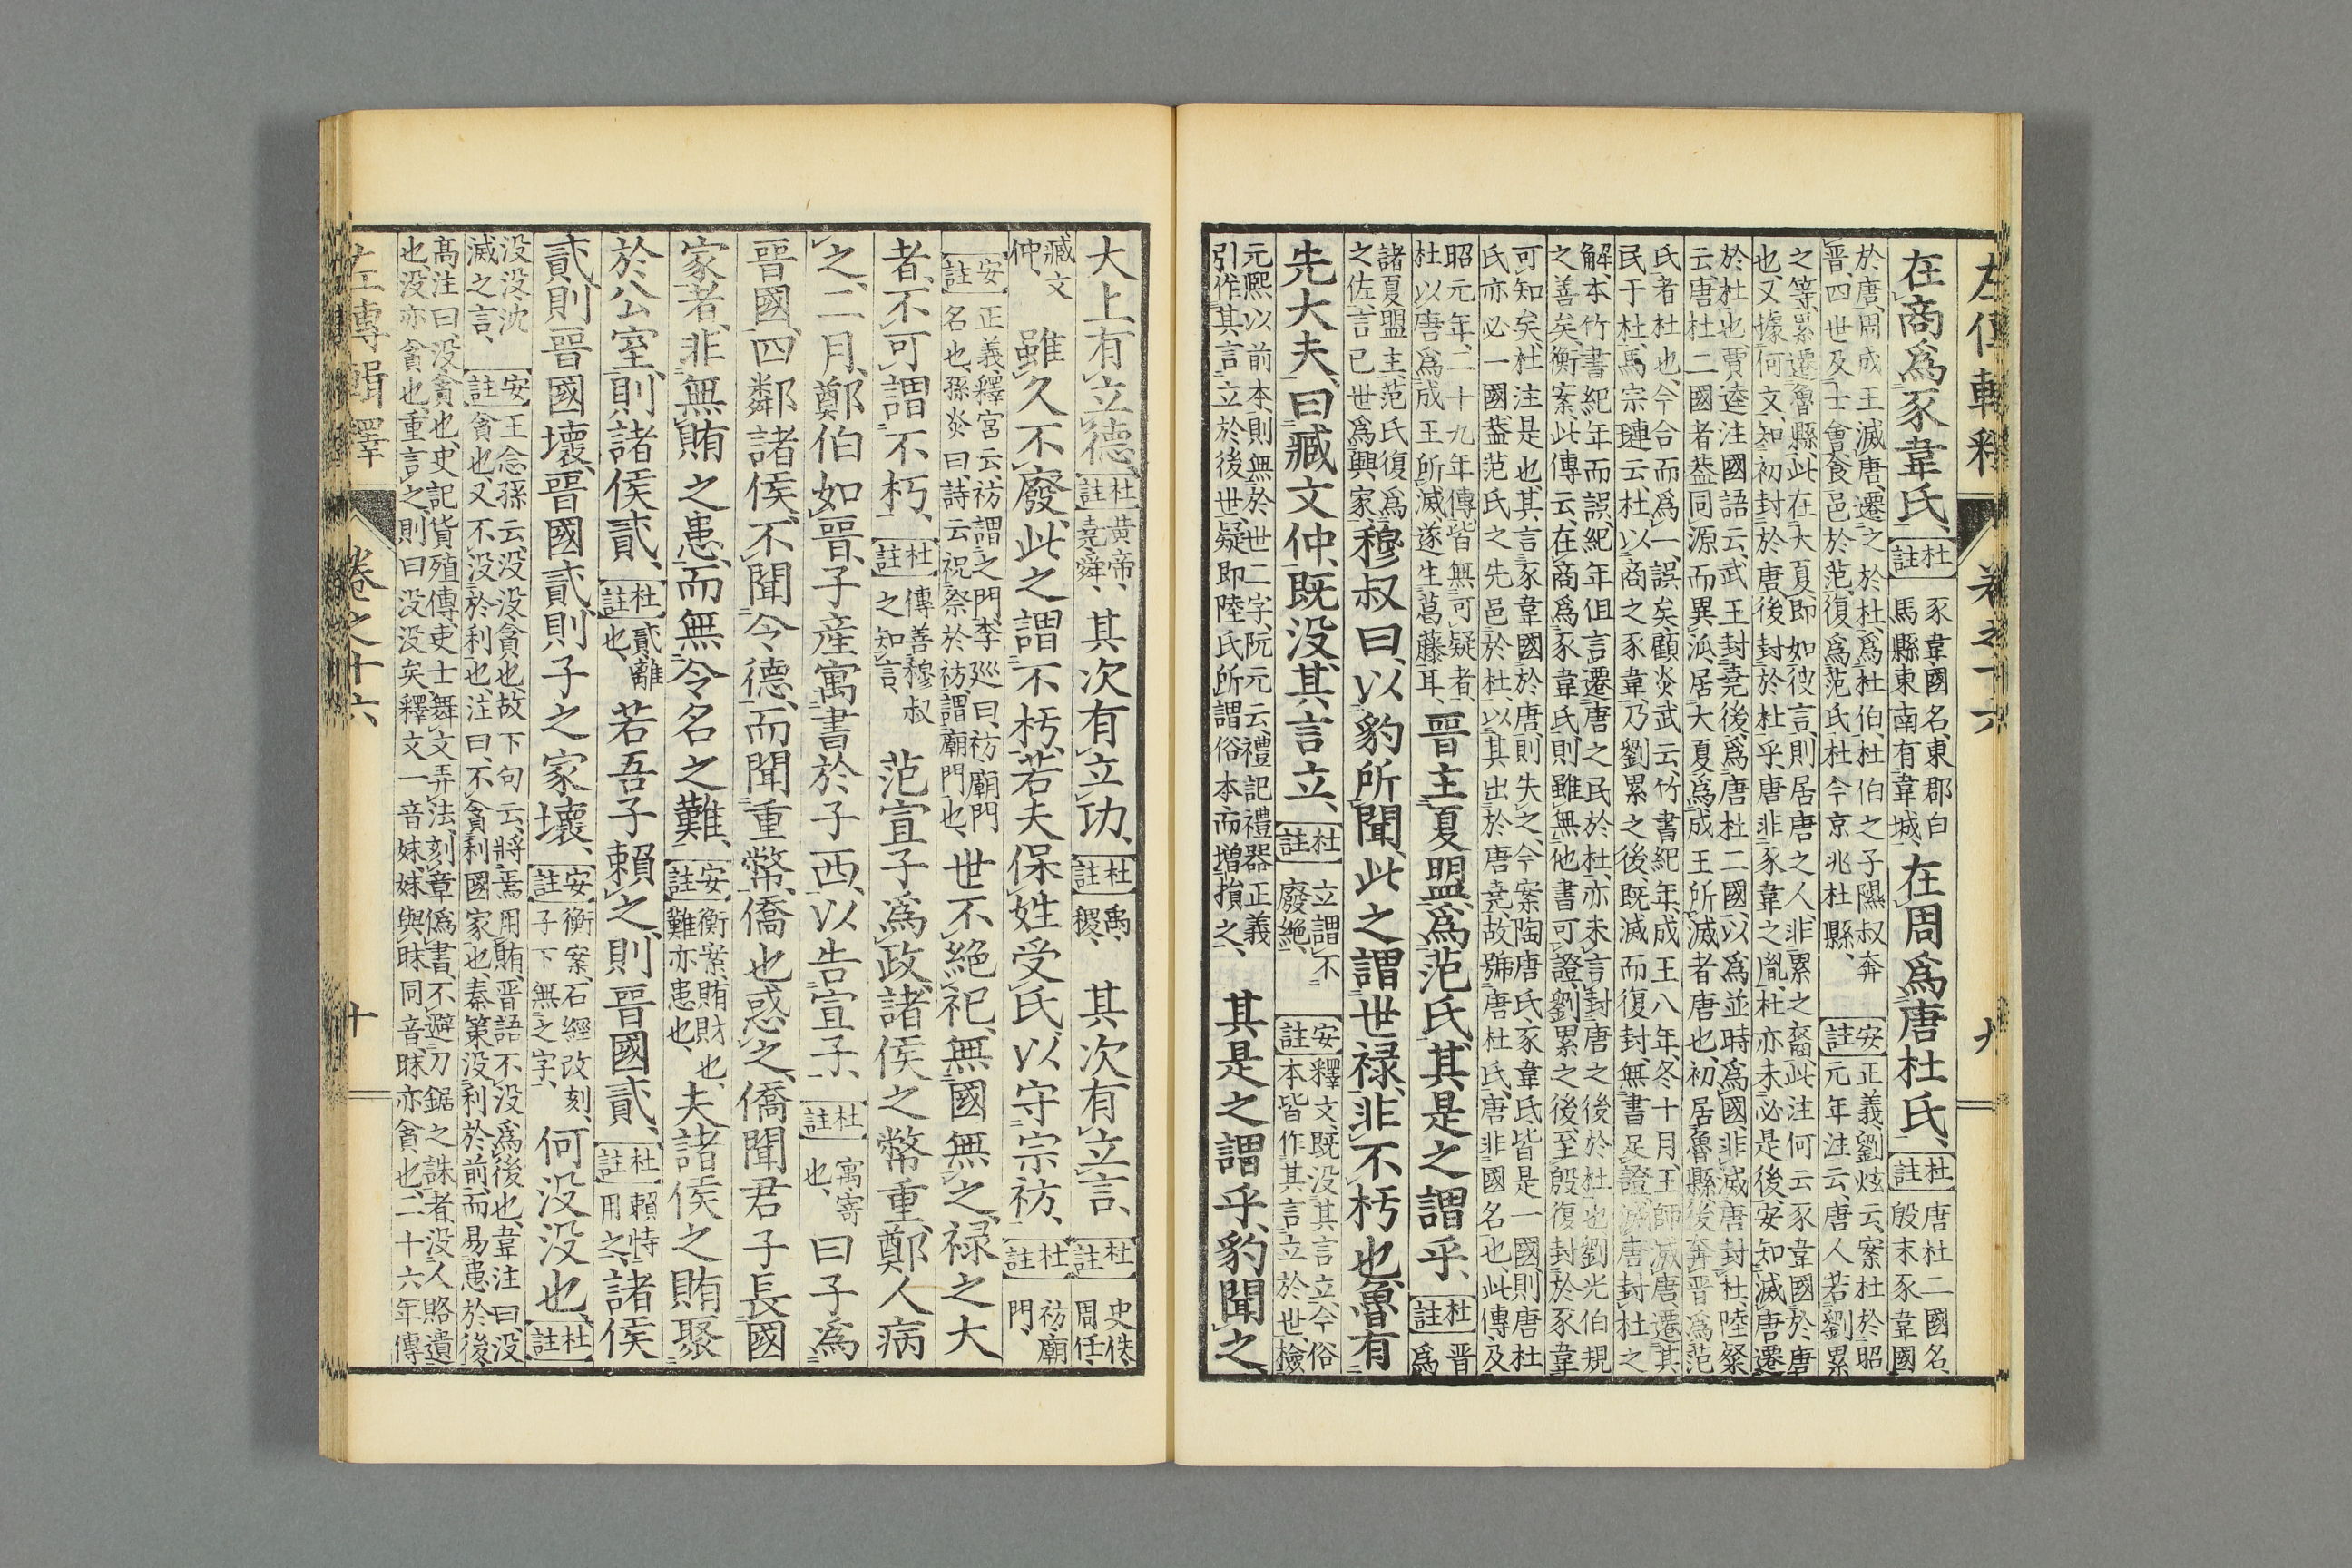 左傳輯釋 卷之十六 九
在商爲豕韋氏、【杜註】豕韋國名、東郡白馬縣東南有韋城、在周爲唐杜氏、【杜註】唐杜二國名、殷末豕韋國
於唐、周成王滅唐、遷之於杜、爲杜伯、杜伯之子隰叔奔晉、四世及士會食邑於范、復爲范氏、杜今京兆杜縣、【安註】正義、劉炫云、案杜於昭元年注云、唐人若劉累
之等、累遷魯縣、此在大夏、即如彼言、則居唐之人、非累之裔、此注何云豕韋國於唐也、又據何文、知初封於唐、後封於杜乎、唐非豕韋之胤、杜亦未必是後、安知滅唐遷
於杜也、賈逵注國語云、武王封堯後、爲唐杜二國、以爲並時爲國、非滅唐封杜、陸粲云、唐杜二國者、葢同源而異派、居大夏、爲成王所滅者唐也、初居魯縣、後奔晉爲范
氏者杜也、今合而爲一、誤矣、顧炎武云、竹書紀年、成王八年、冬十月、王師滅唐、遷其民于杜、馬宗璉云、杜以商之豕韋、乃劉累之後、既滅而復封、無書足證、滅唐封杜之
解、本竹書紀年而誤、紀年但言遷唐之民於杜、亦未言封唐之後於杜也、劉光伯規之善矣、衡案、此傳云、在商爲豕韋氏、則雖無他書可證、劉累之後、至殷復封於豕韋
可知矣、杜注是也、其言豕韋國於唐、則失之、今案陶唐氏豕韋氏、皆是一國、則唐杜氏亦必一國、葢范氏之先、邑於杜、以其出於唐堯、故號唐杜氏、唐非國名也、此傳及
昭元年、二十九年傳、皆無可疑者、杜以唐爲成王所滅、遂生葛藤耳、晉主夏盟爲范氏、其是之謂乎、【杜註】晉爲
諸夏盟主、范氏復爲之佐、言已世爲興家、穆叔曰、以豹所聞、此之謂世禄、非不朽也、魯有
先大夫、曰臧文仲、既没、其言立、【杜註】立謂不廢絶、【安註】釋文、既没其言立、今俗本皆作其言立於世、檢
元熙以前本、則無於世二字、阮元云、禮記禮器正義引作其言立於後世、疑即陸氏所謂俗本而增損之、其是之謂乎、豹聞之、
大上有立德、【杜註】黄帝、堯舜、其次有立功、【杜註】禹、稷、其次有立言、【杜註】史佚、周任、
臧文仲、雖久不廢、此之謂不朽、若夫保姓受氏、以守宗祊、【杜註】祊、廟門、
【安註】正義、釋宮云、祊謂之門、李巡曰、祊、廟門名也、孫炎曰、詩云、祝祭於祊、謂廟門也、世不絶祀、無國無之、禄之大
者、不可謂不朽、【杜註】傳善穆叔之知言、范宣子爲政、諸侯之幣重、鄭人病
之、二月、鄭伯如晉、子産寓書於子西、以告宣子、【杜註】寓、寄也、曰、子爲
晉國、四鄰諸侯、不聞令德、而聞重幣、僑也惑之、僑聞君子長國
家者、非無賄之患、而無令名之難、【安註】衡案、賄、財也、難亦患也、夫諸侯之賄聚
於公室、則諸侯貳、【杜註】貳、離也、若吾子賴之、則晉國貳、【杜註】賴、恃用之、諸侯
貳、則晉國壞、晉國貳、則子之家壞、【安註】衡案、石經改刻、子下無之字、何没没也、【杜註】
没没、沈滅之言、【安註】王念孫云、没没、貪也、故下句云、將焉用賄、晉語、不没爲後也、韋注曰、没、貪也、又不没於利也、注曰、不貪利國家也、秦策、没利於前、而易患於後、
高注曰、没、貪也、史記貨殖傳、吏士舞文弄法、刻章僞書、不避刀鋸之誅者、没人賂遺也、没亦貪也、重言之、則曰没没矣、釋文一音妹、妹與昧同音、昧亦貪也、二十六年傳
左傳輯釋 卷之十六 十